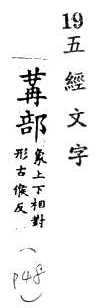 19五經文字
冓部
象上下相對
形古候反
(P48)